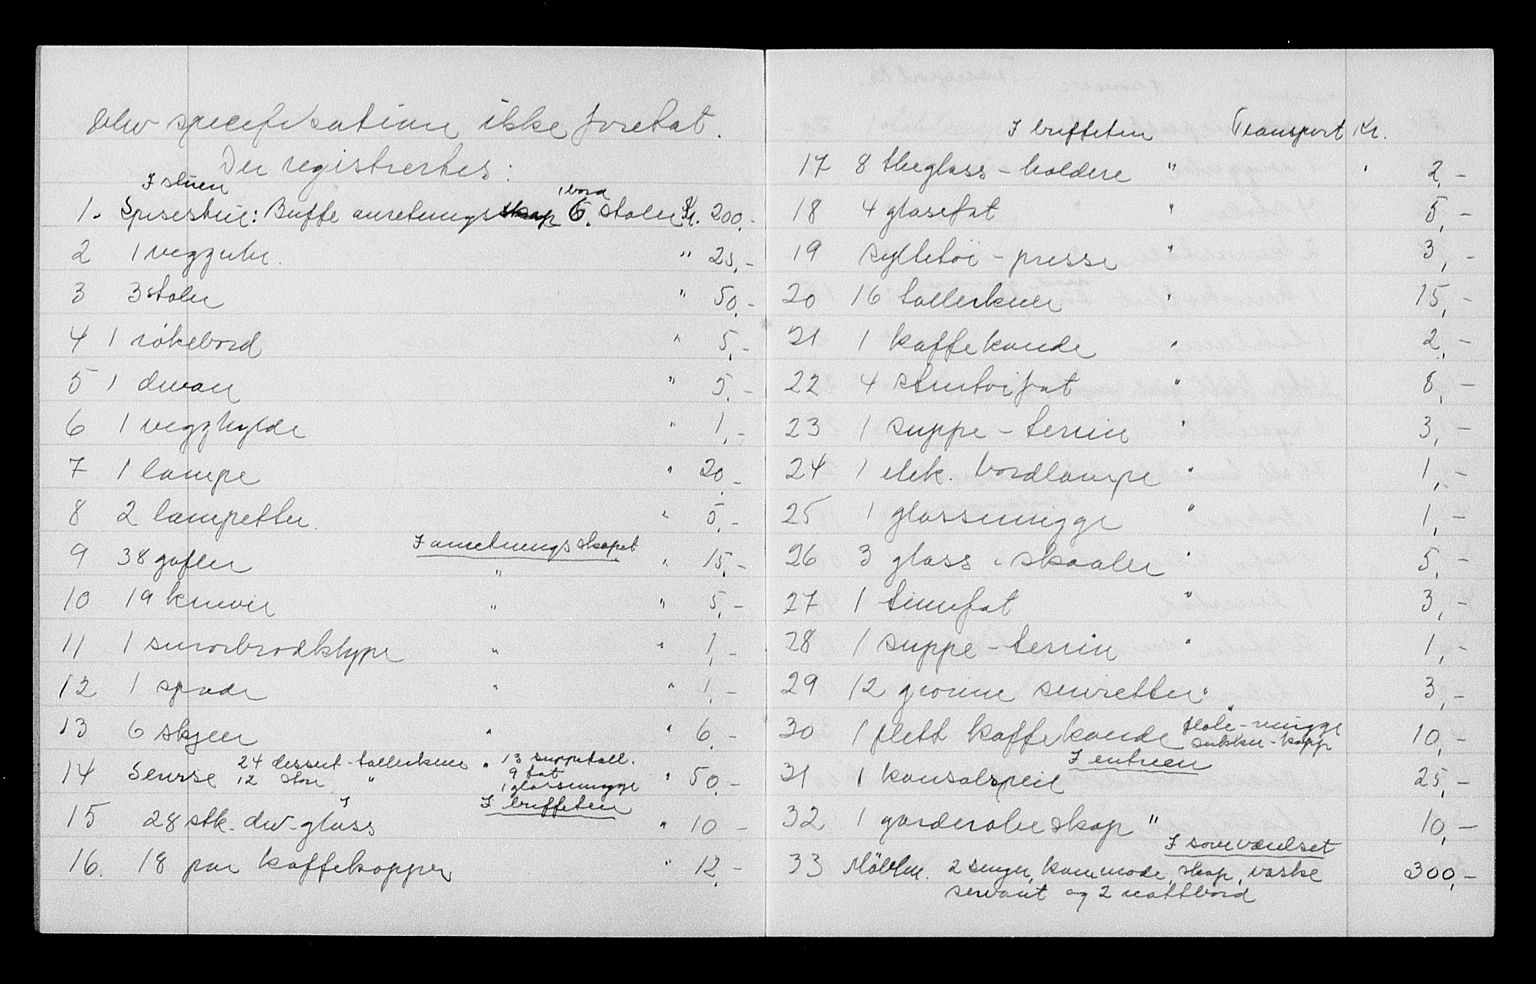 blev specifikation ikke foretat.
Der registrertes:
I stuen
1. Spisestue: Buffe anretningsskap 1 bord 6 stoler Kr. 200,-
2 1 veggur. " 25,-
3 3 stoler " 50,-
4 1 røkebord " 5,-
5 1 divan " 5,-
6 1 vegghylde " 1,-
7 1 lampe " 20,-
8 2 lampetter. " 5,-
I anretningsskapet
9 38 gafler " " 15,-
10 19 kniver " " 5,-
11 1 smørbrødklype " " 1,-
12 1 spade " " 1,-
13 6 skjeer " " 6,-
14 Servise 24 dessert-tallerkener " 13 suppetall. " 50,-
12 stor " 9 fat
1 glassmugge
I buffeten
15 28 stk. div. glass " 10 -
16. 18 par kaffekopper " 12,-
I buffeten Transport Kr.
17 8 theglass-holdere " " 2,-
18 4 glasefat " 5,-
19 syltetøi-presse " 3,-
20 16 tallerkner " 15,-
21 1 kaffekande " 2,-
22 4 stentøifat " 8,-
23 1 suppe-terrin " 3,-
24 1 elek. bordlampe " 1,-
25 1 glassmugge " 1,-
26 3 glass-skaaler " 5,-
27 1 tinnfat " 3,-
28 1 suppe-terrin " 1,-
29 12 servietter " 3,-
30 1 plett kaffekande fløte-mugge 10,-
sukker-kopp
I entreen
31 1 konsolspeil 25,-
32 1 garderobeskap " 10,-
I soveværelset
33 2 senger, kommode, skap, vaske 300,-
servant og 2 nattbord